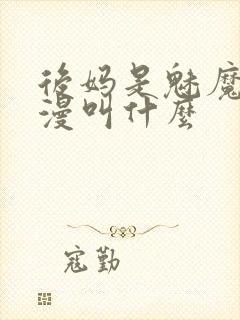 後妈是魅魔
漫叫什麽
寇勤